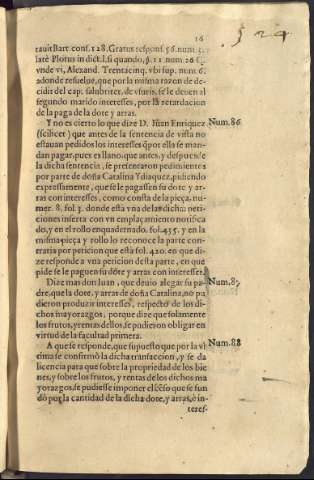 16
§ 24
rauit Bart. cons. 128. Gratus respons. 56. num. 5.
latè Plotus in dict. l. si quando, §. 11. num. 26
vnde vi, Alexand. Trentacinq. vbi sup. num. 6.
adonde resuelue, que por la misma razon de de-
cidir del cap. salubriter, de vsuris, se le deuen al
segundo marido interesses, por la retardacion
de la paga de la dote y arras.
Y no es cierto lo que dize D. Iuan Enriquez
Num. 86
(scilicet) que antes de la sentencia de vista no
estauan pedidos los interesses q̃ por ella se man-
dan pagar, pues es llano, que antes, y despues de
la dicha sentencia, se presentaron pedimientos
por parte de doña Catalina Ydiaquez, pidiendo
expressamente, que se le pagassen su dote y ar-
ras con interesses, como consta de la pieça, nu-
mer. 8. fol. 3. donde està vna de las dichas peti-
ciones inserta con vn emplaçamiento notifica
do, y en el rollo enquadernado. fol. 435. y en la
misma pieça y rollo lo reconoce la parte con-
traria por peticion que està fol. 420. en que di-
ze responde a vna peticion desta parte, en que
pide se le paguen su dote y arras con interesses.
Dize mas don Iuan, que deuio alegar su pa-
Num. 87
dre, que la dote, y arras de doña Catalina, no pu
dieron produzir interesses, respecto de los di-
chos mayorazgos, porque dize que solamente
los frutos, y rentas dellos, se pudieron obligar en
virtud de la facultad primera.
A que se responde, que supuesto que por la vl
Num. 88
tima se confirmò la dicha transaccion, y se da
licencia para que sobre la propiedad de los bie
nes, y sobre los frutos, y rentas de los dichos ma
yorazgos, se pudiesse imponer el cẽso que se fun
dò por la cantidad de la dicha dote, y arras, è in-
teres-